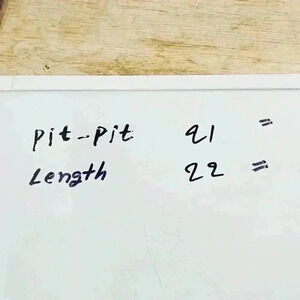 Pit-Pit 21 =
Length 22 =